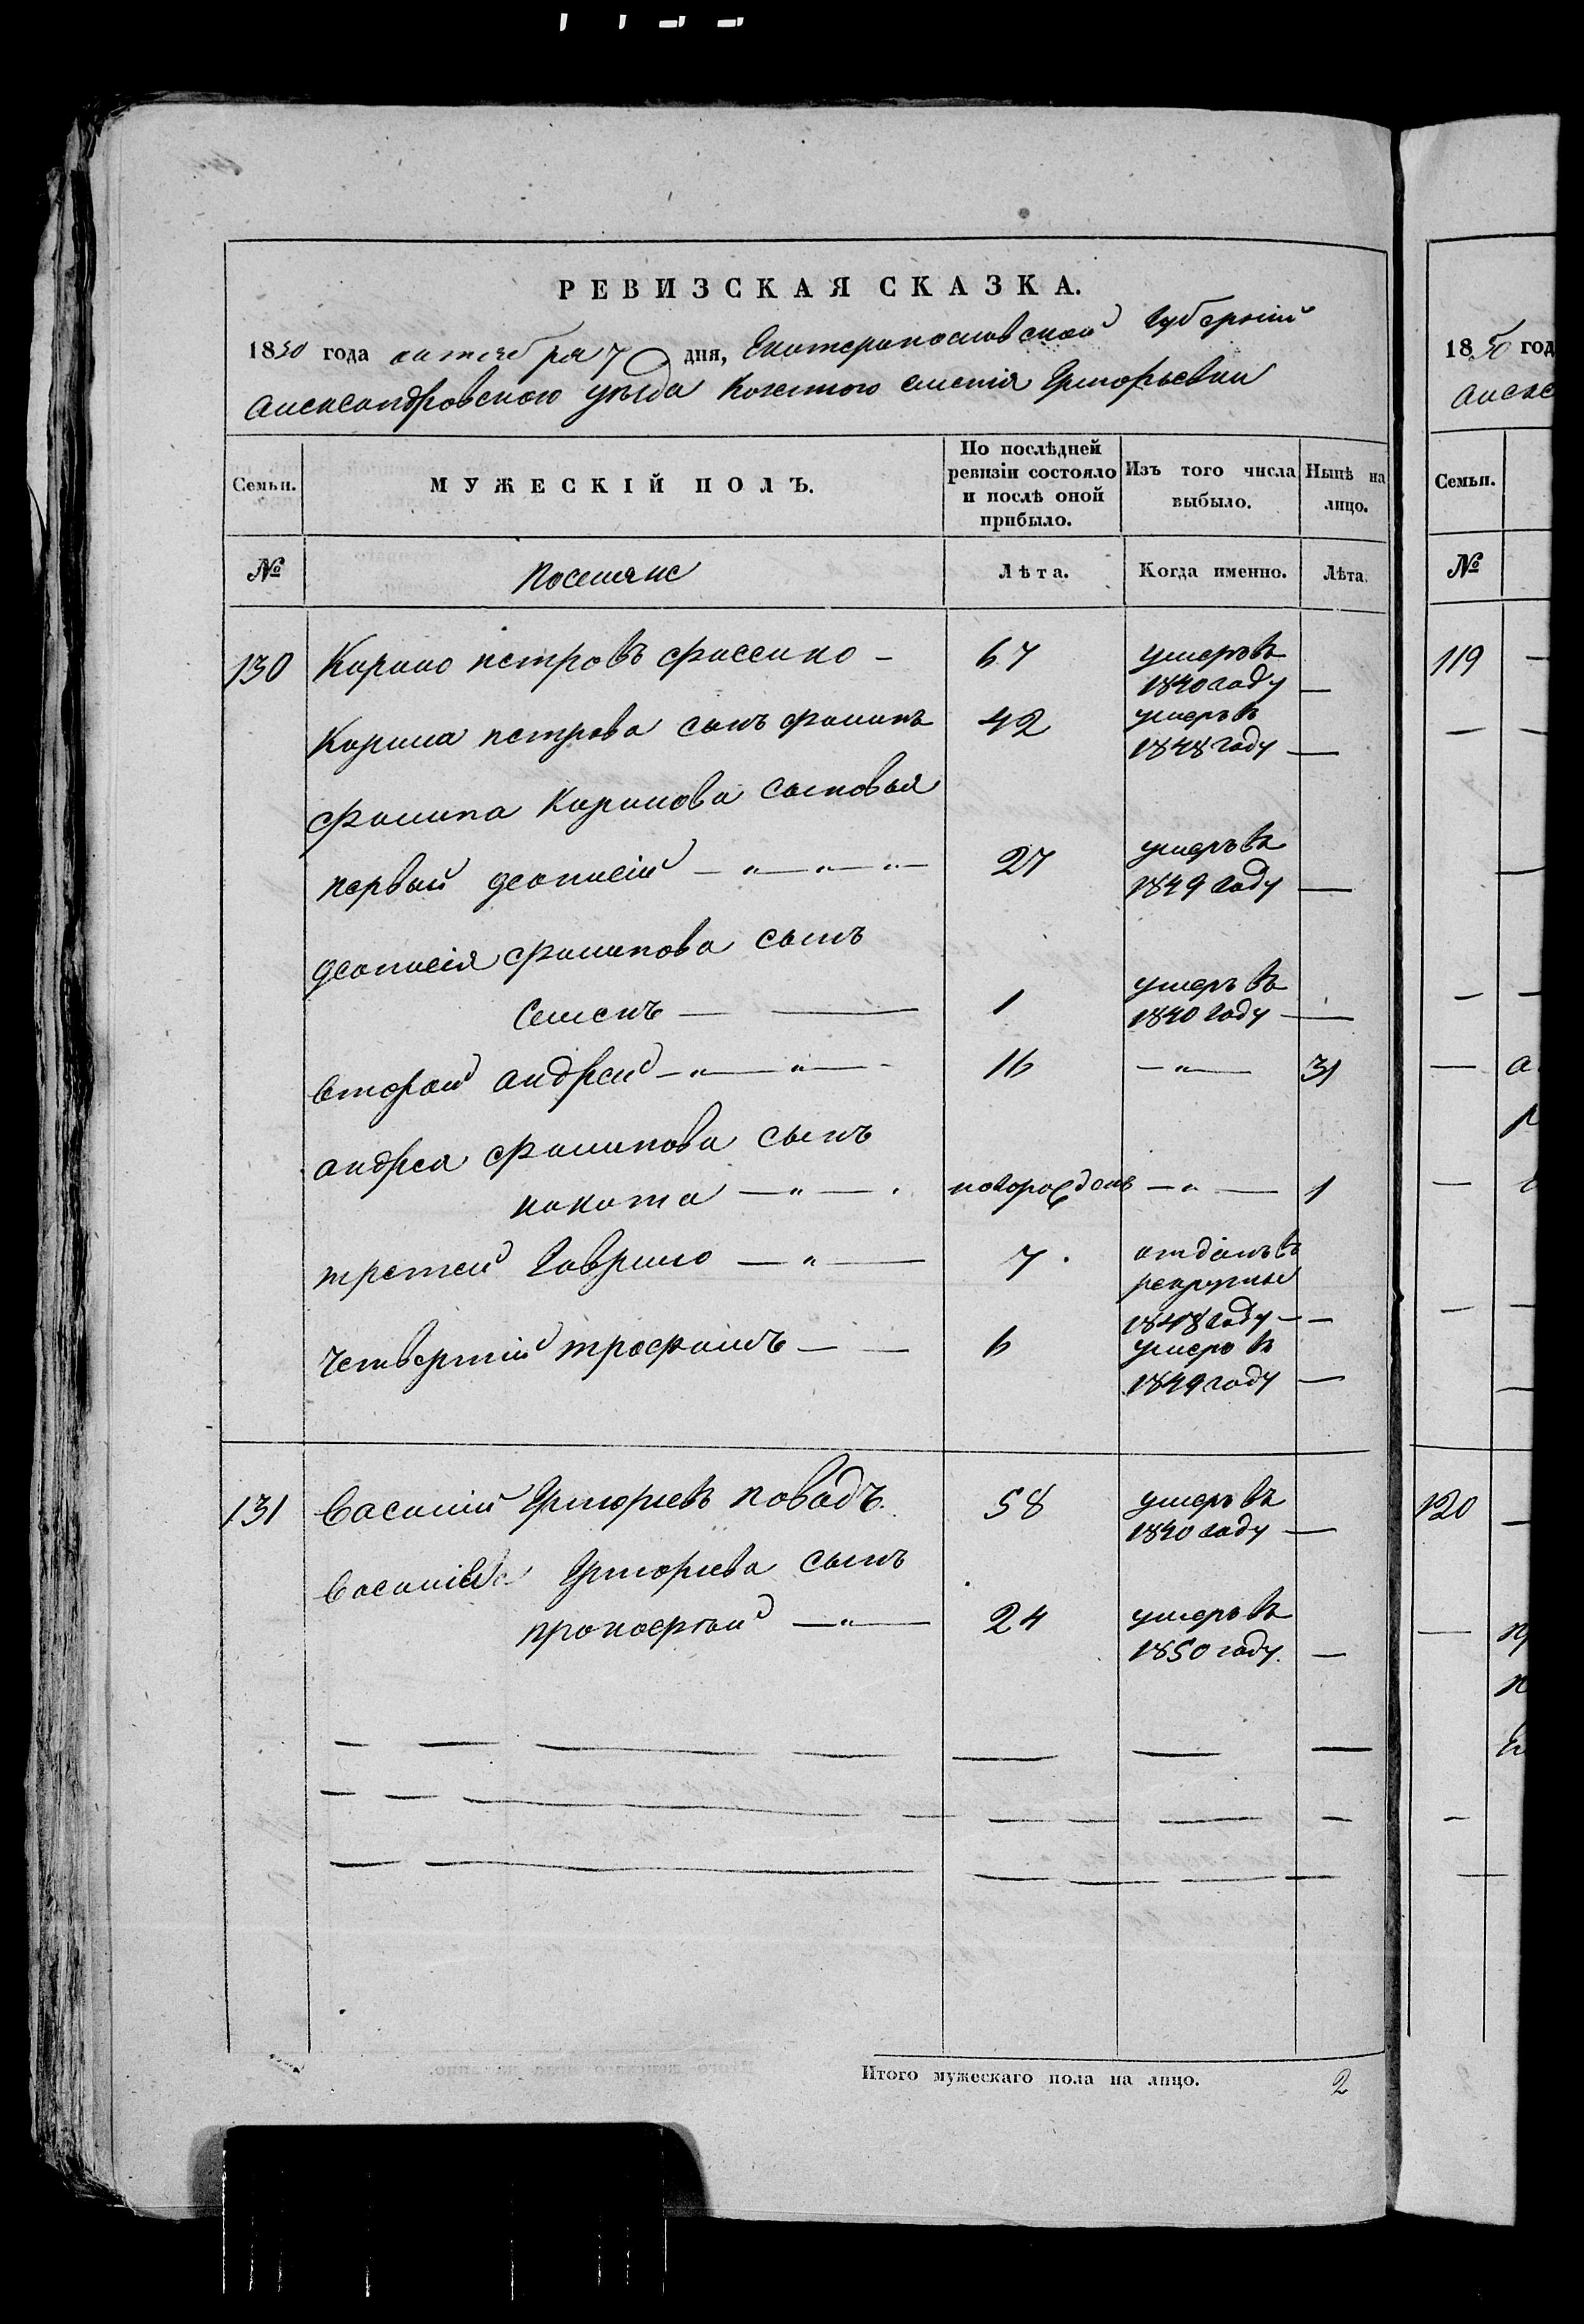 РЕВИЗСКАЯ СКАЗКА.
1850 года октября 7 дня, Екатеринославской Губерніи
Александровского уѣзда Козенного селенія Григорьевки
Семьи.
МУЖЕСКІЙ ПОЛЪ.
По послѣдней
ревизіи состояло
и послѣ оной
прибыло.
Изъ того числа
выбыло.
Нынѣ на
лицо.
№
Поселяне
Лѣта.
Когда именно.
Лѣта.
130 Кирило петровъ 67 умеръ въ
1840 году —
Кирила петрова сынъ филипъ 42 умеръ въ
1848 году —
филипа Кирилова сыновья
первый деонисій 27 умеръ въ
1849 году —
деонисія филипова сынъ
Семенъ — 1 умеръ въ
1840 году —
второй андрей 16 — 31
андрея филипова сынъ
никита новорожденъ — 1
третей Гаврило 7 отданъ въ
рекруты
1848 году —
четвертый трофимъ — 6 умеръ въ
1849 году —
131 Василий Григорьевъ 58 умеръ въ
1840 году —
Василия Григорьева сынъ
прокофей 24 умеръ въ
1850 году. —
Итого мужескаго пола на лицо. 2
1850 год
Семьи.
№
119
120